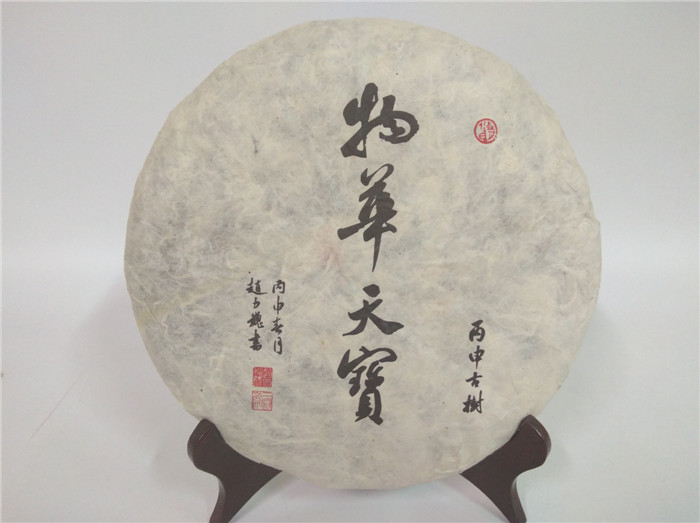 物華天寶
丙申古樹
丙申春月